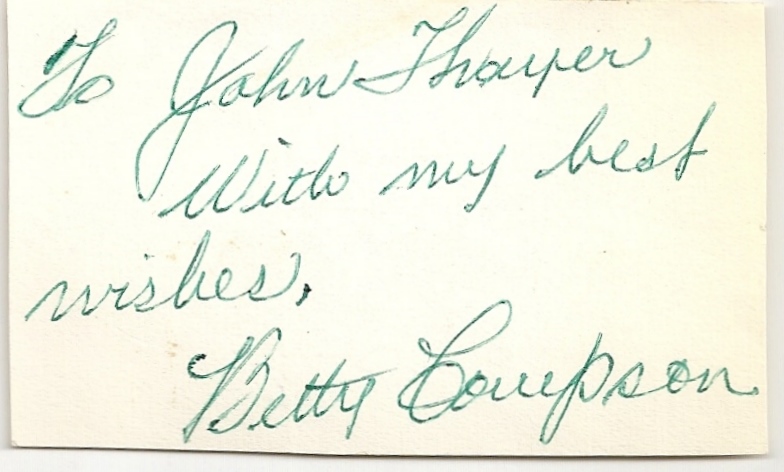 To John Thayer
With my best
wishes,
Betty Compson